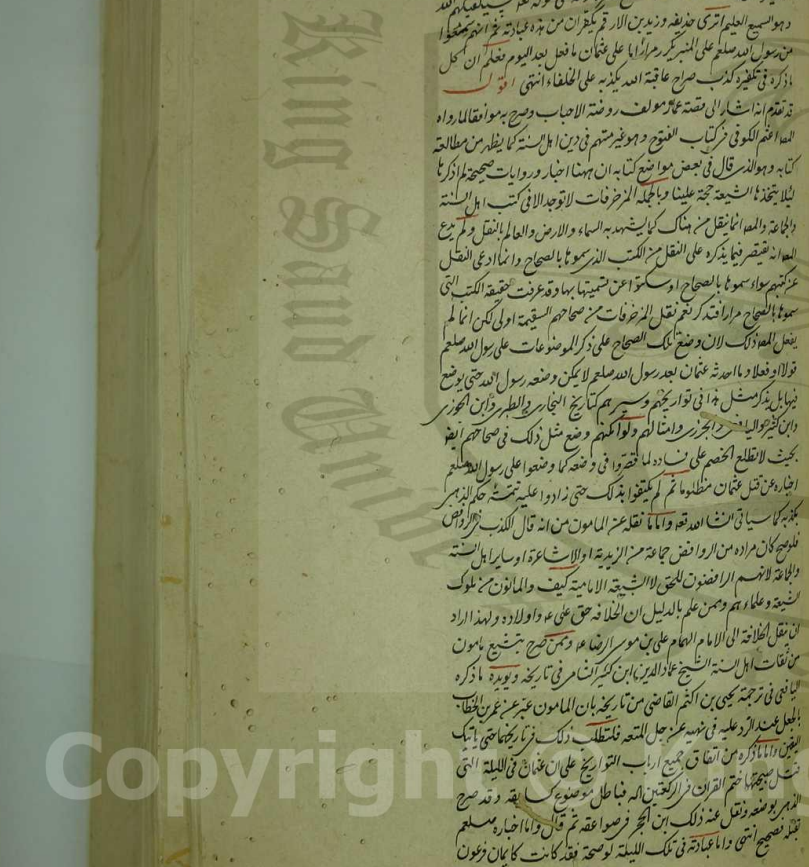 وهو السميع العليم اترى حذيفه وزيد بن الارقم يكفران من هذه عبادته ثم انهم سمعوا
من رسول الله صلعم على المنبر يكرر مرارا ما على عثمان ما فعل بعد اليوم فعلم ان كل
ما ذكره فى تكفيره كذب صراح عاقبة الله بكذبه على الخلفاء انتهى اقول
قد تقدم انه اشار الى قصة عمار مولف روضة الاحباب وصرح به موافقا لما رواه
اعثم الكوفى فى كتاب الفتوح وهو غير متهم فى دين اهل السنة كما يظهر من مطالعة
كتابه وهو الذى قال فى بعض مواضع كتابه ان ههنا اخبار وروايات صحيحة لم اذكرها
لئلا يتخذها الشيعة حجة علينا وبالجملة المزخرفات لا توجد الا فى كتب اهل السنة
والجماعة والمص انما ينقل من هناك كما يشهد به السماء والارض والعالم بالنقل ولم يدع
المص انه يقتصر فيما يذكره على النقل من الكتب الذى سموها بالصحاح وانما ادعى النقل
عن كتبهم سواء سموها بالصحاح او سكتوا عن تسميتها بها وقد عرفت حقيقة الكتب التى
سموها بالصحاح مرارا فتذكر نعم نقل المزخرفات من صحاحهم السقيمة اولى لكن انما لم
يفعل المص ذلك لان وضع تلك الصحاح على ذكر الموضوعات على رسول الله صلعم
قولا او فعلا وما احدثه عثمان بعد رسول الله صلعم لا يمكن وضعه رسول الله حتى يوضع
فيها بل يذكر مثل هذا فى تواريخهم وسيرهم كتاريخ البخارى والطبرى وابن الجوزى
وابن كثير واليافعى والجزرى وامثالهم ولو امكنهم وضع مثل ذلك فى صحاحهم ايضا
بحيث لا تطلع الخصم على فساده لما قصروا فى وضعه كما وضعوا على رسول الله صلعم
اخباره عن قتل عثمان مظلوما ثم لم يكتفوا بذلك حتى زادوا عليه تتمة حكم الذهبى
بكذبه كما سياتى انشا الله تعالى واما ما نقله عن المامون من انه قال الكذب فى الروافض
فلو صح كان مراده من الروافض جماعة من الزيدية او الاشاعرة او ساير اهل السنة
والجماعة لانهم الرافضون للحق لا الشيعة الامامية كيف والمامون من ملوك
الشيعة وعلماءهم وممن علم بالدليل ان الخلافة حق على واولاده ولهذا اراد
ان ينقل الخلافة الى الامام الهمام على بن موسى الرضا وممن صرح بتشيع مامون
من ثقات اهل السنة الشيخ عماد الدين ابن كثير الشامى فى تاريخه ويويده ما ذكره
اليافعى فى ترجمة يحيى بن اكثم القاضى من تاريخه بان المامون عبر عن عمر بن الخطاب
بالجعل عند الرد عليه فى نهيه عن حل المتعة فلتطلب ذلك فى تاريخهما حتى ياتيك
اليقين واما ما ذكره من اتفاق جميع ارباب التواريخ على ان عثمان فى الليلة التى
قتل صبيحتها ختم القران فى الركعتين فباطل موضوع وقد صرح
الذهبى بوضعه ونقل عنه ذلك ابن الحجر فى صواعقه ثم قال واما اخباره صلعم
بقتله فصحيح انتهى واما عبادته فى تلك الليلة لو صحت فقد كانت كايمان فرعون
Copyright ©
King Saud University